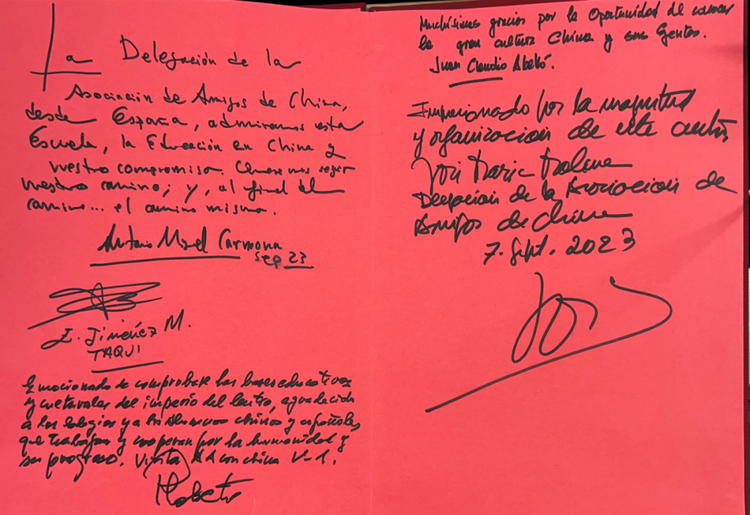 La Delegación de la
Asociación de Amigos de China,
desde España, admiramos esta
Escuela, la Educación en China y
vuestro compromiso. Queremos seguir
vuestro camino; y, al final del
camino... el camino mismo.
Antonio Miguel Carmona
Sep 23
E. Jiménez M.
TAQUI
Emocionado de comprobar las bases educativas
y culturales del imperio del centro, agradecido
a los colegios y a los alumnos chinos y españoles
que trabajan y cooperan por la humanidad y
su progreso. Visita AA con china V-1.
Muchísimas gracias por la oportunidad de conocer
la gran cultura China y sus Gentes.
Juan Claudio
Impresionado por la magnitud
y organizacion de este centro
José Maria
Delegacion de la Asociacion de
Amigos de China
7. Sept. 2023